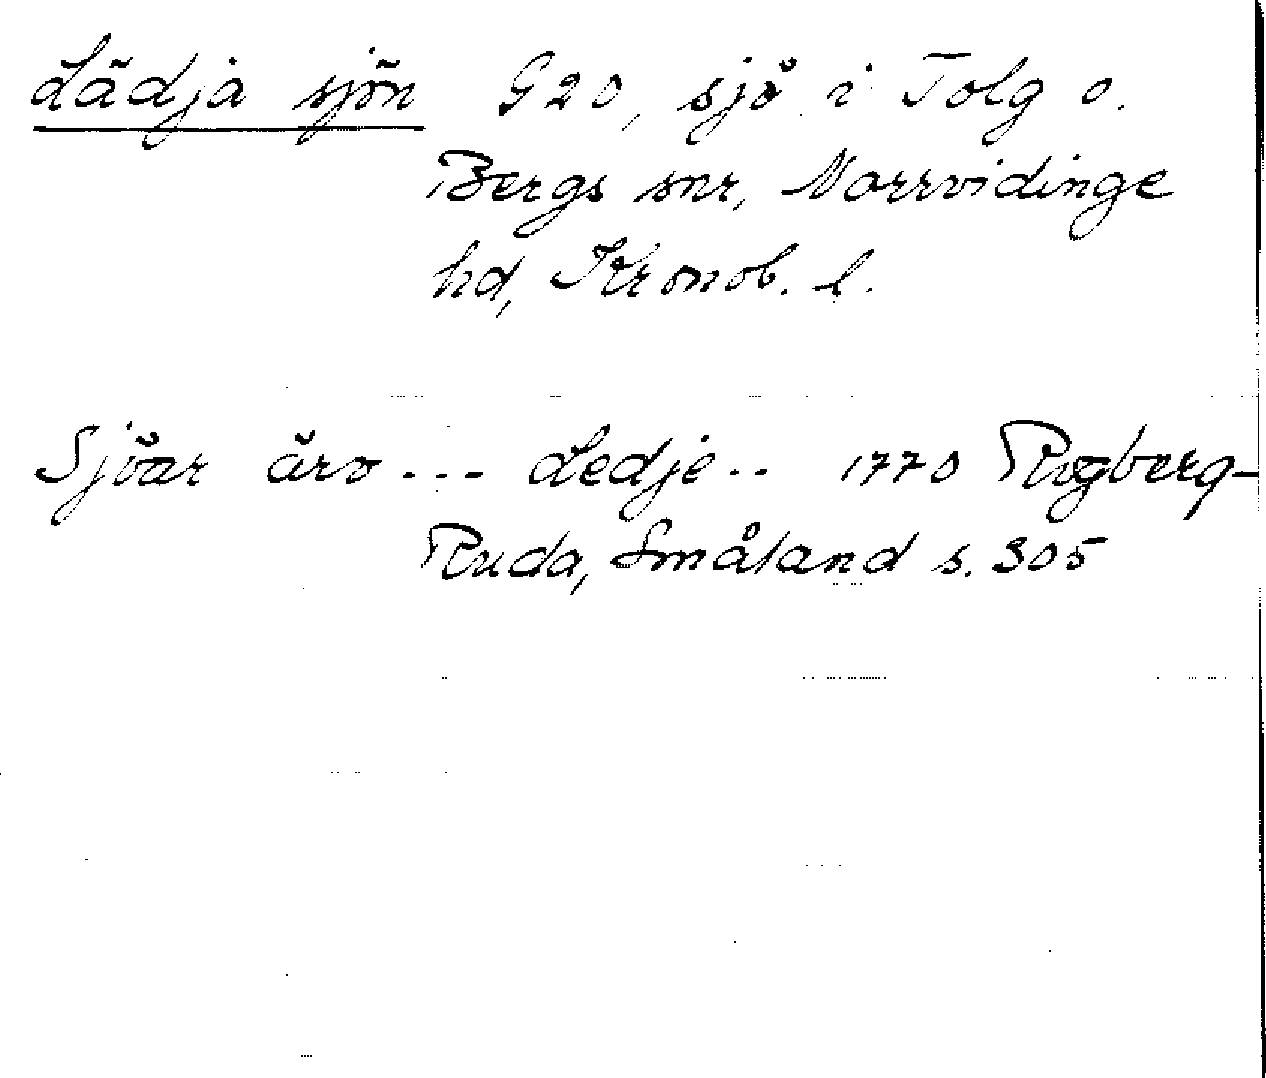 Lädja sjön G20, sjö i Tolg o.
Bergs snr, Norrvidinge
hd, Kronob. l.
Sjöar äro --- Ledje -- 1770 Rogberg-
Ruda, Småland s. 305